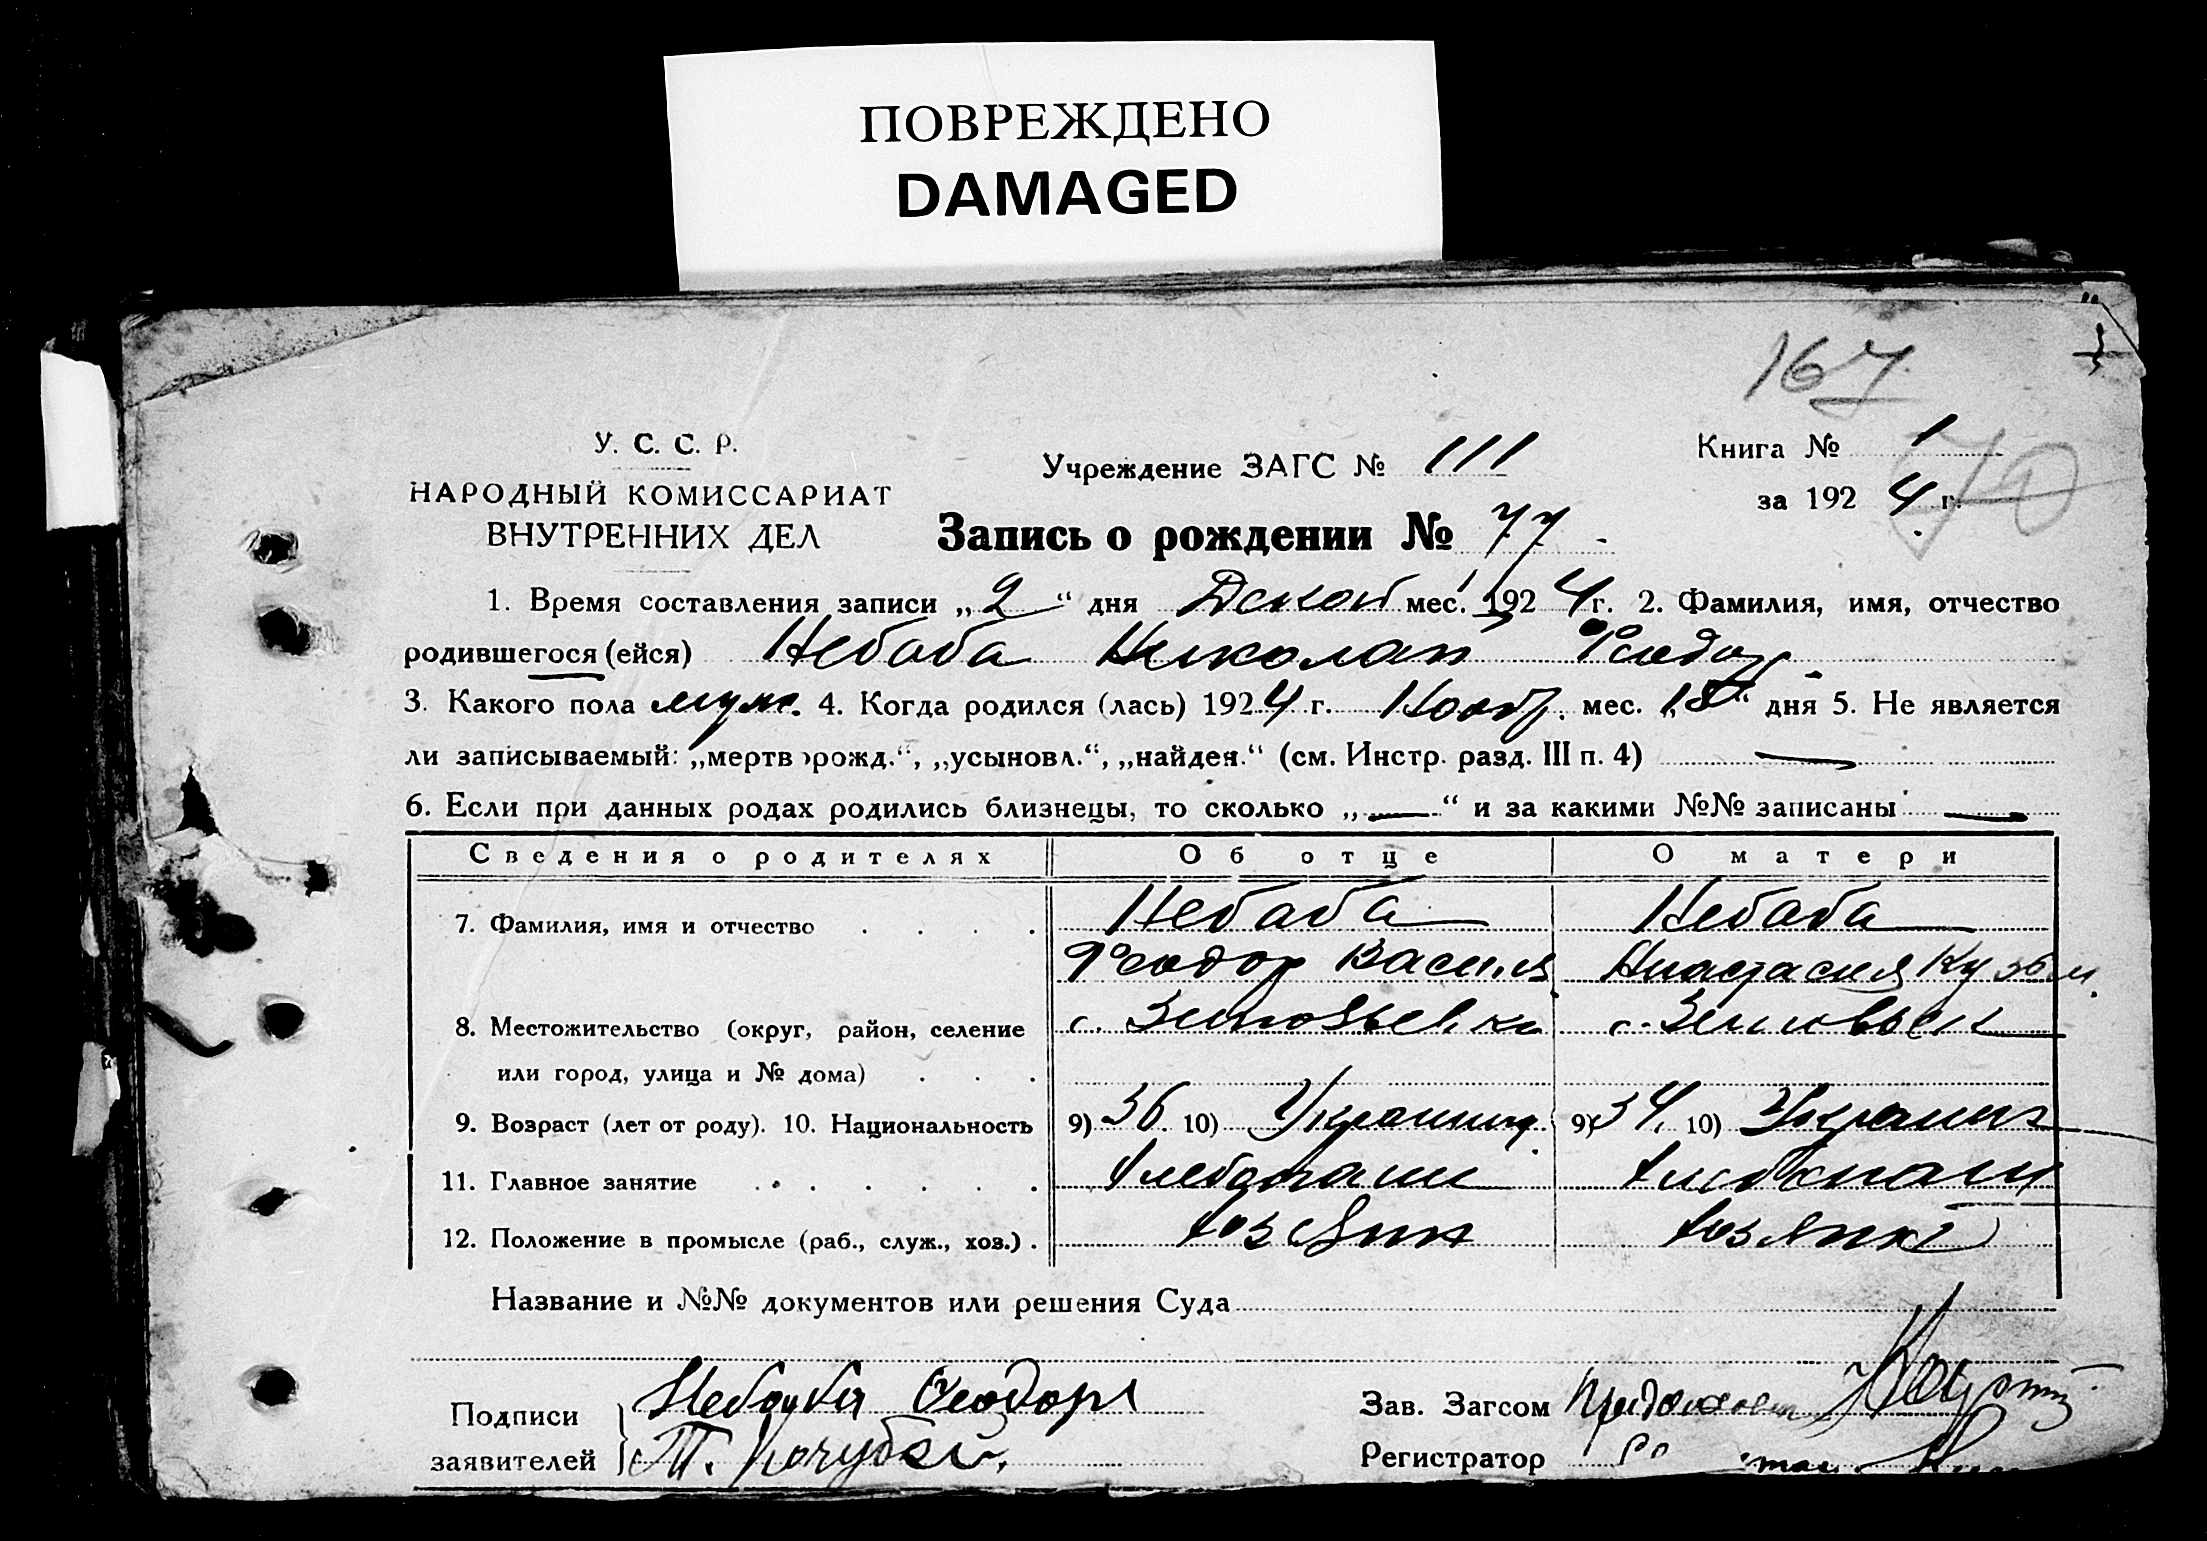 ПОВРЕЖДЕНО
DAMAGED
167
У. С. С. Р.
НАРОДНЫЙ КОМИССАРИАТ
ВНУТРЕННИХ ДЕЛ
Учреждение ЗАГС № 111
Книга № 1
за 1924 г.
70
Запись о рождении № 77
1. Время составления записи „2“ дня мес. 1924 г. 2. Фамилия, имя, отчество
родившегося (ейся) Небаба Николай Феодор
3. Какого пола муж. 4. Когда родился (лась) 1924 г. Нояб. мес. „18“ дня 5. Не является
ли записываемый: „мертворожд.“, „усыновл.“, „найден.“ (см. Инстр. разд. III п. 4) —
6. Если при данных родах родились близнецы, то сколько „—“ и за какими №№ записаны —
Сведения о родителях Об отце О матери
7. Фамилия, имя и отчество . . . . Небаба Небаба
Феодор Васил. Анастасия Кузьм.
8. Местожительство (округ, район, селение с. Зиновьевка с. Зиновьевк
или город, улица и № дома) . . .
9. Возраст (лет от роду). 10. Национальность 9) 36. 10) Украинец 9) 34. 10) Украин
11. Главное занятие . . . . . . хлебопаш хлебопаш
12. Положение в промысле (раб., служ., хоз.) . хозяин хозяйка
Название и №№ документов или решения Суда
Подписи Небаба Феодор
заявителей Т. Кочубей.
Зав. Загсом
Регистратор